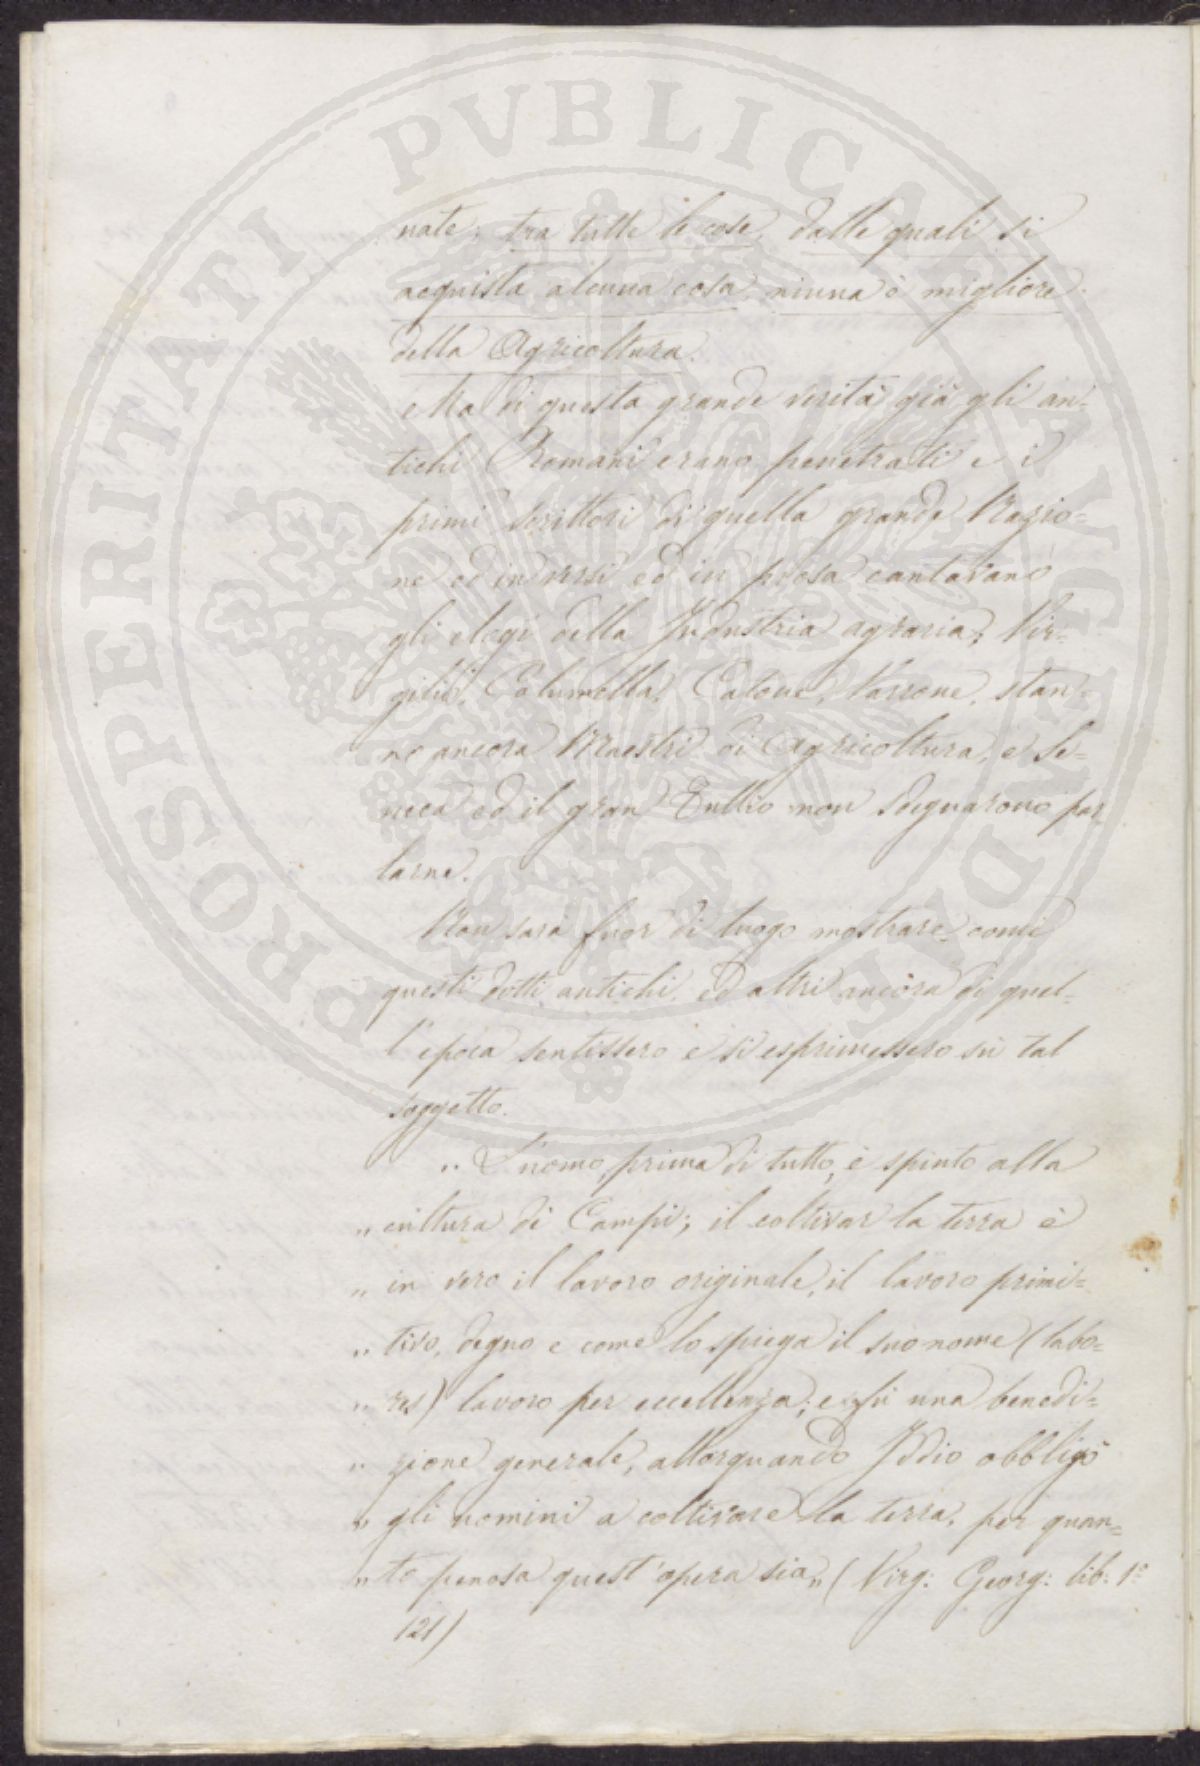 PROSPERITATI PVBLICAE AVGENDAE
nate, tra tutte le cose, dalle quali si
acquista alcuna cosa, niuna è migliore
della Agricoltura.
Ma di questa grande verità già gli an=
tichi Romani erano penetrati e i
primi scrittori di quella grande Nazio=
ne ed in versi ed in prosa cantavano
gli elogi della Industria agraria; Vir=
gilio, Columella, Catone, Varrone, stan=
no ancora Maestri di Agricoltura, e Se=
neca ed il gran Tullio non sdegnarono par
larne.
Non sarà fuor di luogo mostrare come
questi dotti antichi, ed altri ancora di quel=
l'epoca sentissero e si esprimessero su tal
soggetto.
„ L'uomo, prima di tutto, è spinto alla
„ cultura di Campi; il coltivar la terra è
„ in vero il lavoro originale, il lavoro primi=
„ tivo, degno e come lo spiega il suo nome (labo=
„ res) lavoro per eccellenza; e fu una benedi=
„ zione generale, allorquando Iddio obbligò
„ gli uomini a coltivare la terra, per quan=
„ to penosa quest'opera sia „ (Virg: Georg: lib: 1º
121)